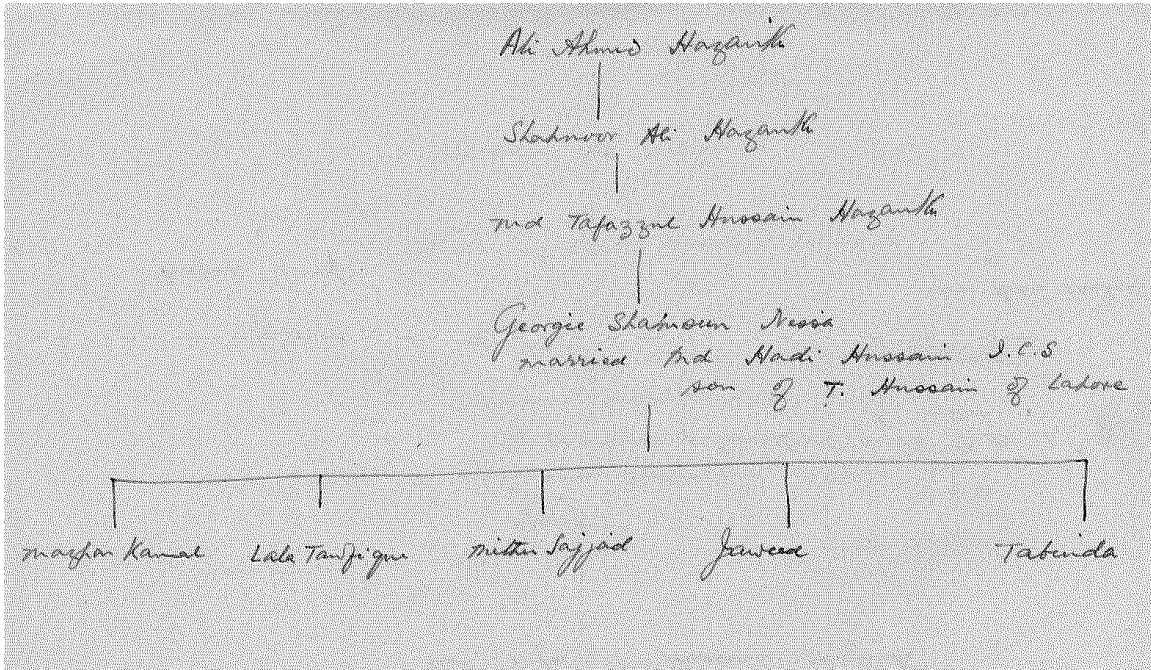 Ali Ahmed Hazarika
Shahnoor Ali Hazarika
Md Tafazzul Hussain Hazarika
Georgie Shahnoun Nessa
married Md Hadi Hussain I.C.S
son of T. Hussain of Lahore
Mazhar Kamal Lala Taufique Mithu Sajjad Jaweed Tabinda